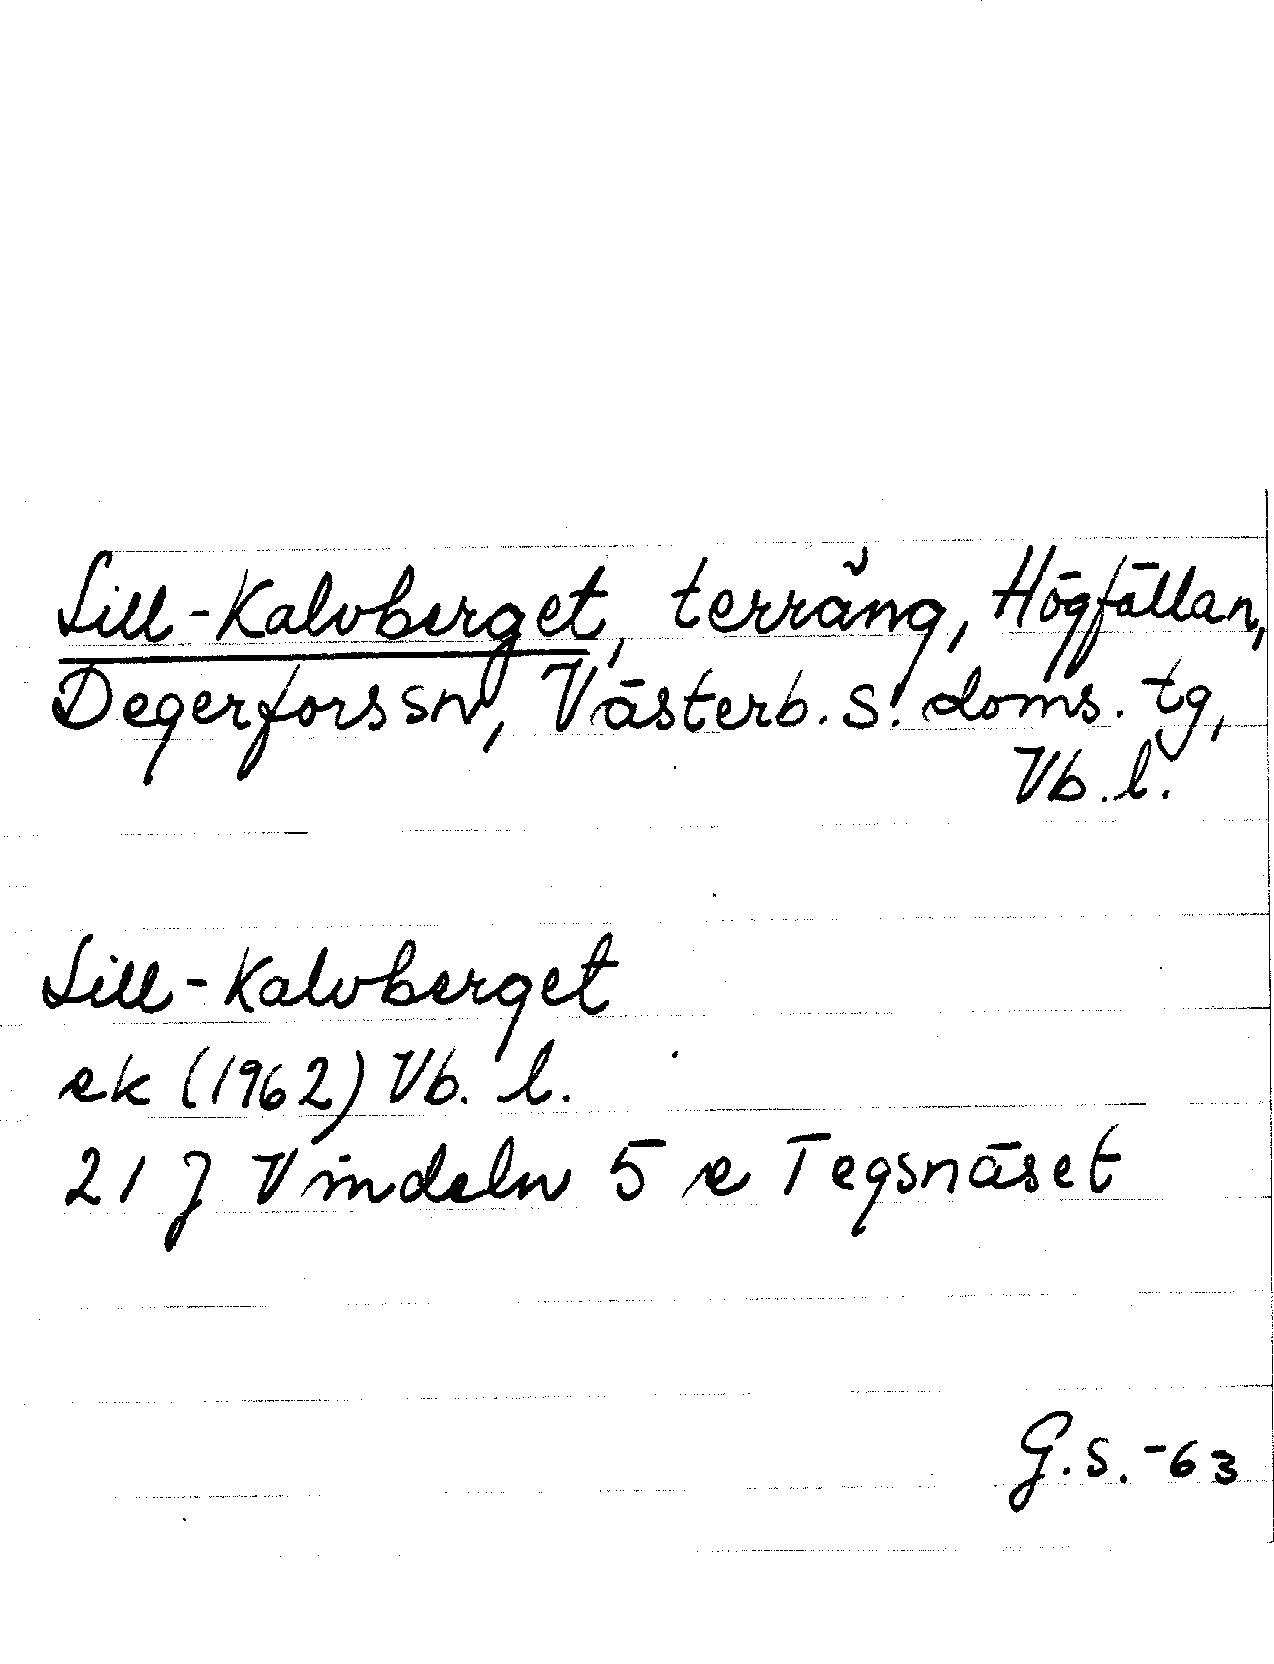 Lill-Kalvberget, terräng, Högfällan,
Degerfors sn, Västerb. s. doms. tg,
Vb. l.
Lill-Kalvberget
ek (1962) Vb. l.
21 J Vindeln 5 e Tegsnäset
G.S. -63